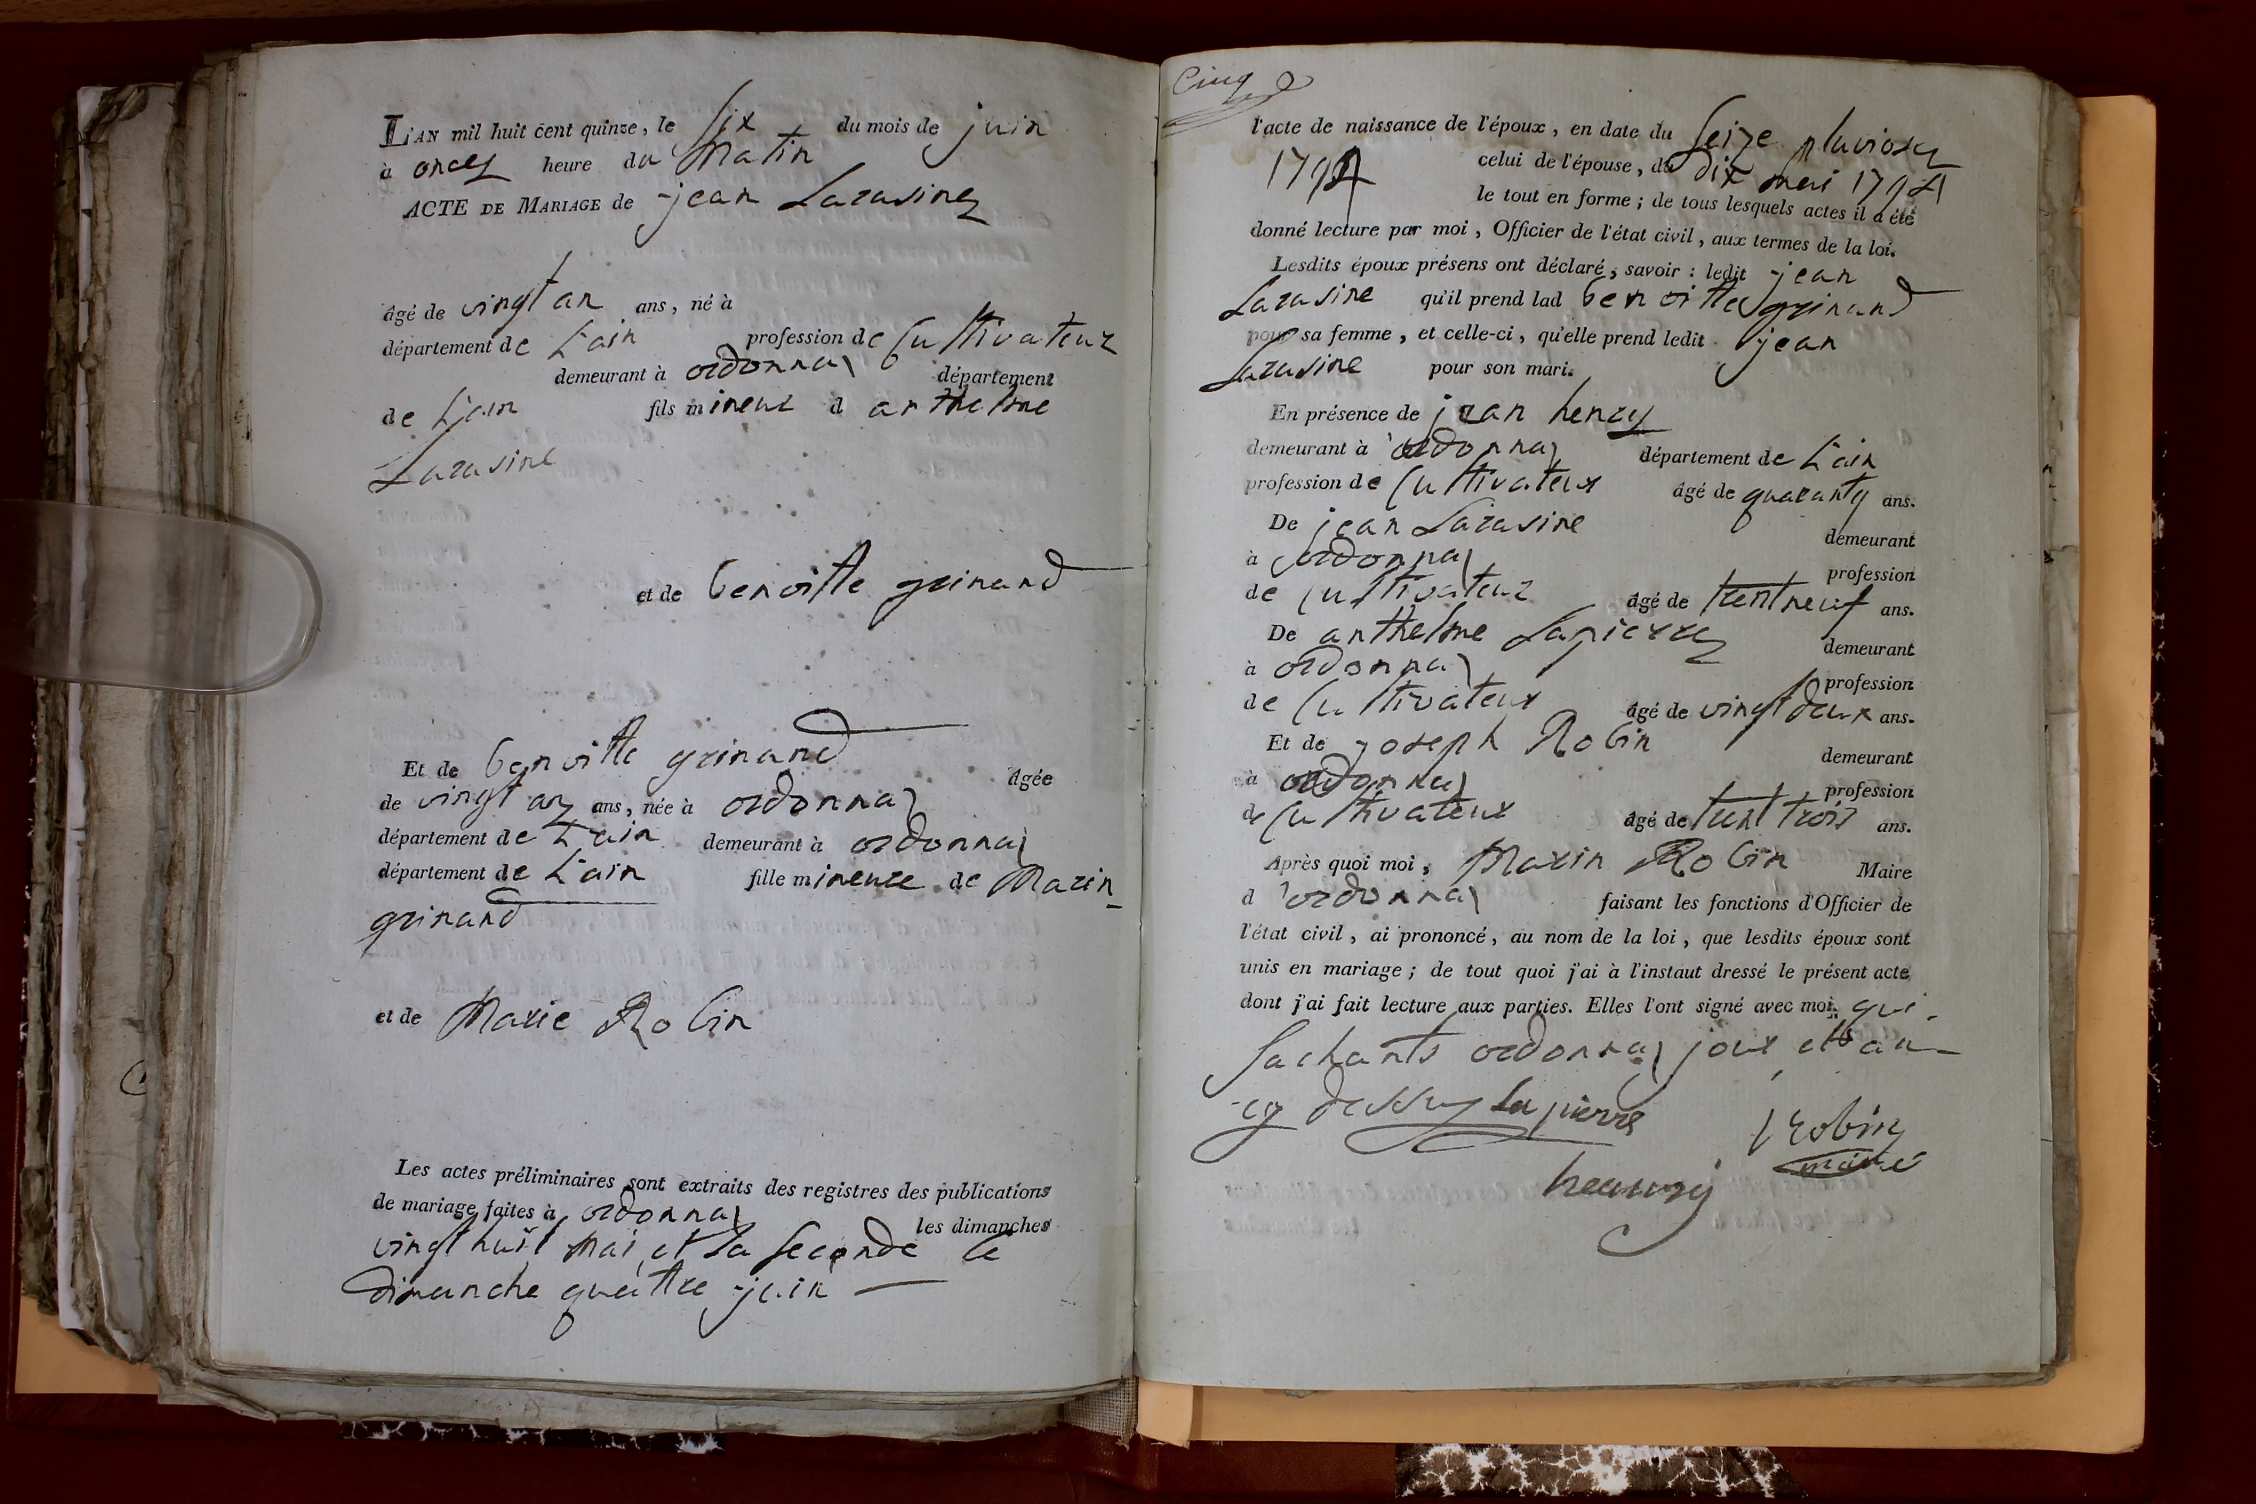 L'AN mil huit cent quinze, le Six du mois de juin
à onces heure du Matin
ACTE DE MARIAGE de jean Larasine
âgé de vingt an ans, né à
département de L'ain profession de Cultivateur
demeurant à ordonnas département
de L'ain fils mineur d anthelme
Larasine
et de benoitte grinand
Et de benoitte grinand âgée
de vingt an ans, née à ordonnas
département de L'ain demeurant à ordonnas
département de L'ain fille mineure de Marin
grinand
et de Marie Robin
Les actes préliminaires sont extraits des registres des publications
de mariage faites à ordonnas les dimanches
vingt huit Mai et la Seconde le
dimanche quattre juin
Cinq
l'acte de naissance de l'époux, en date du Seize pluviose
1794 celui de l'épouse, du dix mai 1794
le tout en forme; de tous lesquels actes il a été
donné lecture par moi, Officier de l'état civil, aux termes de la loi.
Lesdits époux présens ont déclaré, savoir: ledit jean
Larasine qu'il prend lad benoitte grinand
pour sa femme, et celle-ci, qu'elle prend ledit jean
Larasine pour son mari.
En présence de jean henry
demeurant à ordonnas département de L'ain
profession de Cultivateur âgé de quarante ans.
De jean Larasine demeurant
à ordonnas profession
de Cultivateur âgé de trent neuf ans.
De anthelme Lapierre demeurant
à ordonnas profession
de Cultivateur âgé de vingt deux ans.
Et de joseph Robin demeurant
à ordonnas profession
de Cultivateur âgé de trent trois ans.
Après quoi moi, Marin Robin Maire
d'ordonnas faisant les fonctions d'Officier de
l'état civil, ai prononcé, au nom de la loi, que lesdits époux sont
unis en mariage; de tout quoi j'ai à l'instaut dressé le présent acte
dont j'ai fait lecture aux parties. Elles l'ont signé avec moi, qui
Sachants ordonnas jour et an
dessus Lapierre Robin
maire
heanry